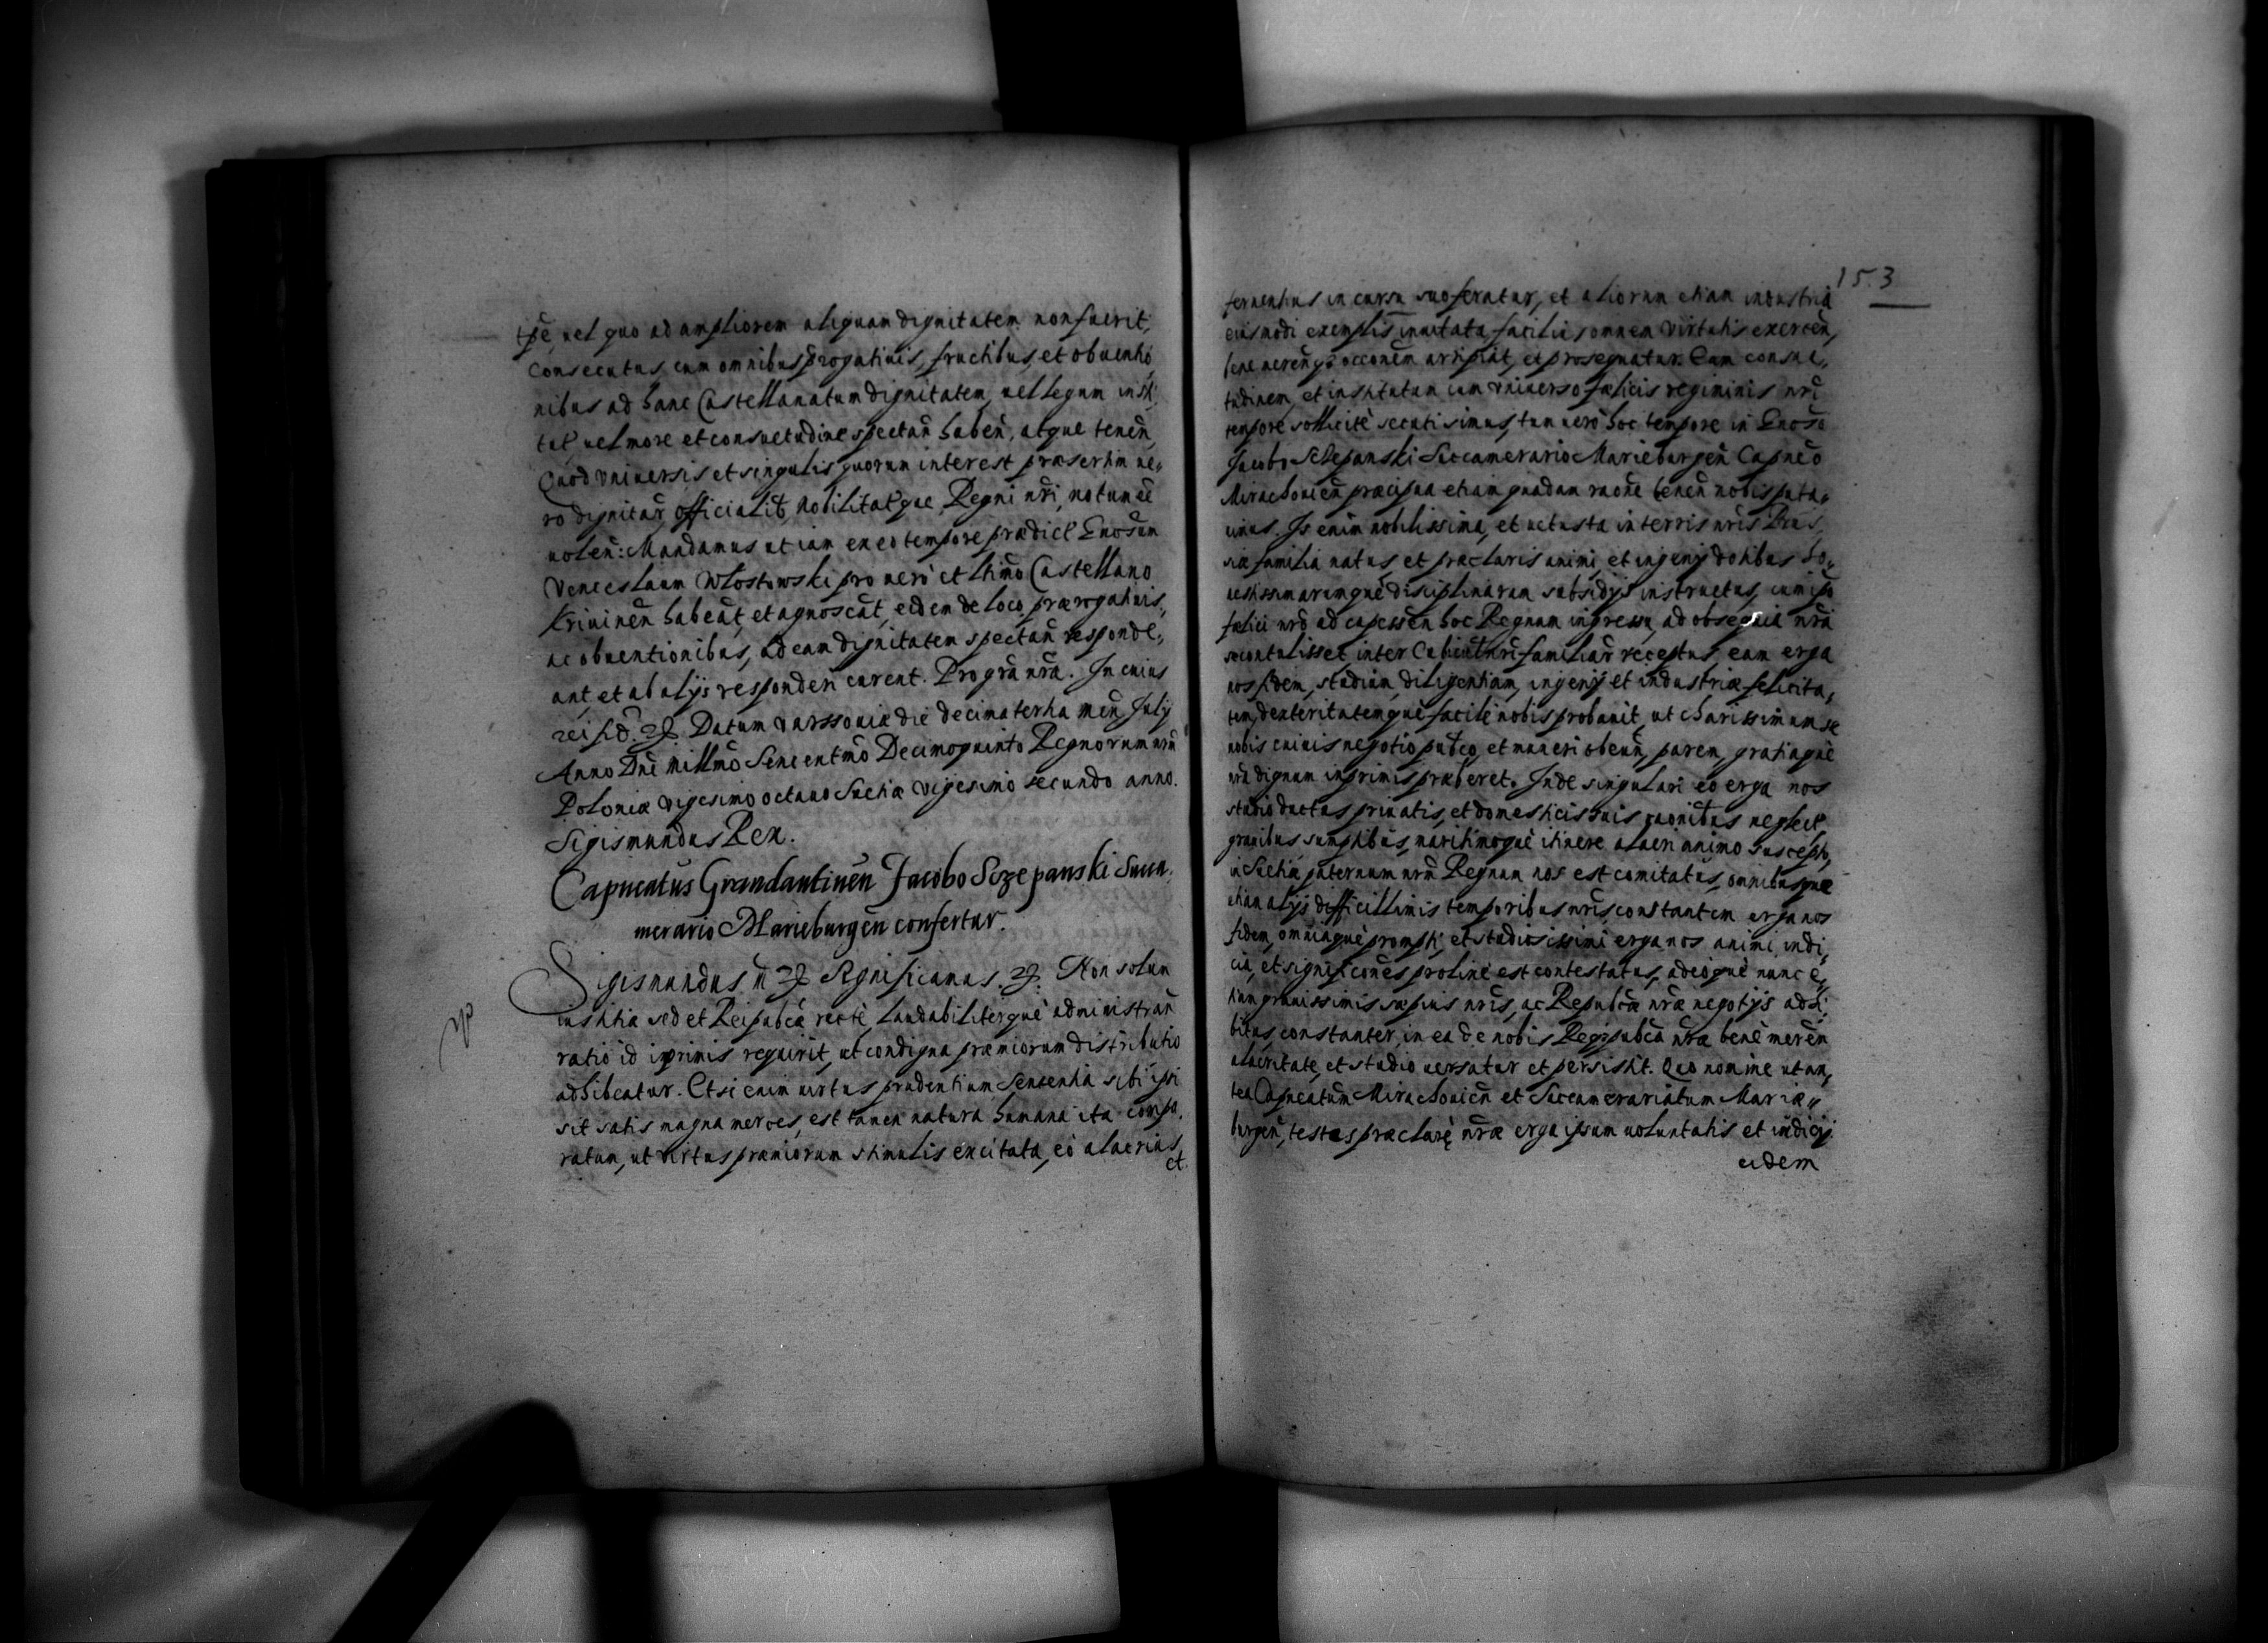 tpe, vel quo ad ampliorem aliquam dignitatem non fuerit,
consecutus, cum omnibus prrogatiuis, fructibus, et obuentio,
nibus ad hanc Castellanatum dignitatem, vel legum insti,
tut, vel more et consuetudine spectan̄ haben̄, atque tenen̄,
Quod vniuersis et singulis quorum interest præsertim ve,,
ro dignitar̄, officialib, nobilitatque Regni nr̄i, notum eē
volen̄: Mandamus ut iam ex eo tempore prædict Gnosum
Venceslaum Wlostowski pro vero et ltimo Castellano
Kriuinen̄ habeāt, et agnoscāt, eidem de loco, prærogatiuis,
ac obuentionibus, ad eam dignitatem spectan̄ responde,,
ant, et ab alijs responderi curent. Pro gr̄a nr̄a. In cuius
rei fid. Datum Varssouiæ die decima tertia men̄ July
Anno Dn̄i Millmo Sexcentmo Decimoquinto Regnorum nr̄u
Poloniæ vigesimo octauo Suetiæ vigesimo secundo anno.
Sigismundus Rex.
Capneatus Graudantinen̄ Jacobo Sczepanski Succa,
merario Marieburgen̄ confertur.
Sigismundus III Significamus. Non solum
iustitia sed et Reipubcæ rectè, laudabiliterquè administran̄
ratio id inprimis requirit, ut condigna præmiorum distributio
adhibeatur. Etsi enim virtus prudentium sententia sibi ipsi
sit satis magna merces, est tamen natura humana ita compa,
ratum, ut virtus præmiorum stimulis excitata, eò alacrius,
et
153
feruentius in cursu suo feratur, et aliorum etiam industria
eiusmodi exemplis inuitata facilius omnem virtutis exercen̄,
bene meren̄q occonem arripiat, et prosequatur. Eam consue,
tudinem, et institutum cum vniuerso fælicis regiminis nr̄i
tempore sollicitè secuti simus, tum verò hoc tempore in Gnoso
Jacobo Sczepanski Succamerario Marieburgen̄ Capneo
Mirachouien̄ præcipua etiam quadam raone tenen̄ nobis puta,
uimus. Is enim nobilissima, et vetusta in terris nr̄is Prus,
siæ familia natus et præclaris animi et ingenij dotibus ho,,
nestissimarumquè disciplinarum subsidijs instructus, cum ipso
fælici nr̄o ad capessen̄ hoc Regnum ingressu, ad obsequia nr̄a
se contulisset, inter Cubicul nr̄i familiar̄ receptus, eam erga
nos fidem, studium, diligentiam, ingenij et industriæ felicita,
tem, dexteritatemquè facilè nobis probauit, ut charissimum se
nobis cuiuis negotio pubco, et muneri obeun̄, parem, gratiaquè
nr̄a dignum inprimis præberet. Inde singulari eo erga nos
studio ductus, priuatis, et domesticis suis raonibus neglect
grauibus sumptibus, maritimoquè itinere alacri animo suscepto,
in Suetiæ paternum nr̄m Regnum nos est comitatus, omnibusque
etiam alijs difficillimis temporibus nr̄is constantem erga nos
fidem, omniaquè prompti, et studiosissimi erga nos animi indi,
cia, et significones proline est contestatus, adeòquè nunc e,,
tiam grauissimis sæpius nr̄is, ac Repubcæ nr̄æ negotijs adhi,
bitus, constanter, in ea de nobis Reipubca nr̄a benè meren̄
alacritate, et studio uersatur et persistit. Quo nomine ut an,
tea Capneatum Mirachouien̄ et Succamerariatum Mariæ,,
burgen̄, testes præclaræ nr̄æ erga ipsum voluntatis et iudicij
eidem